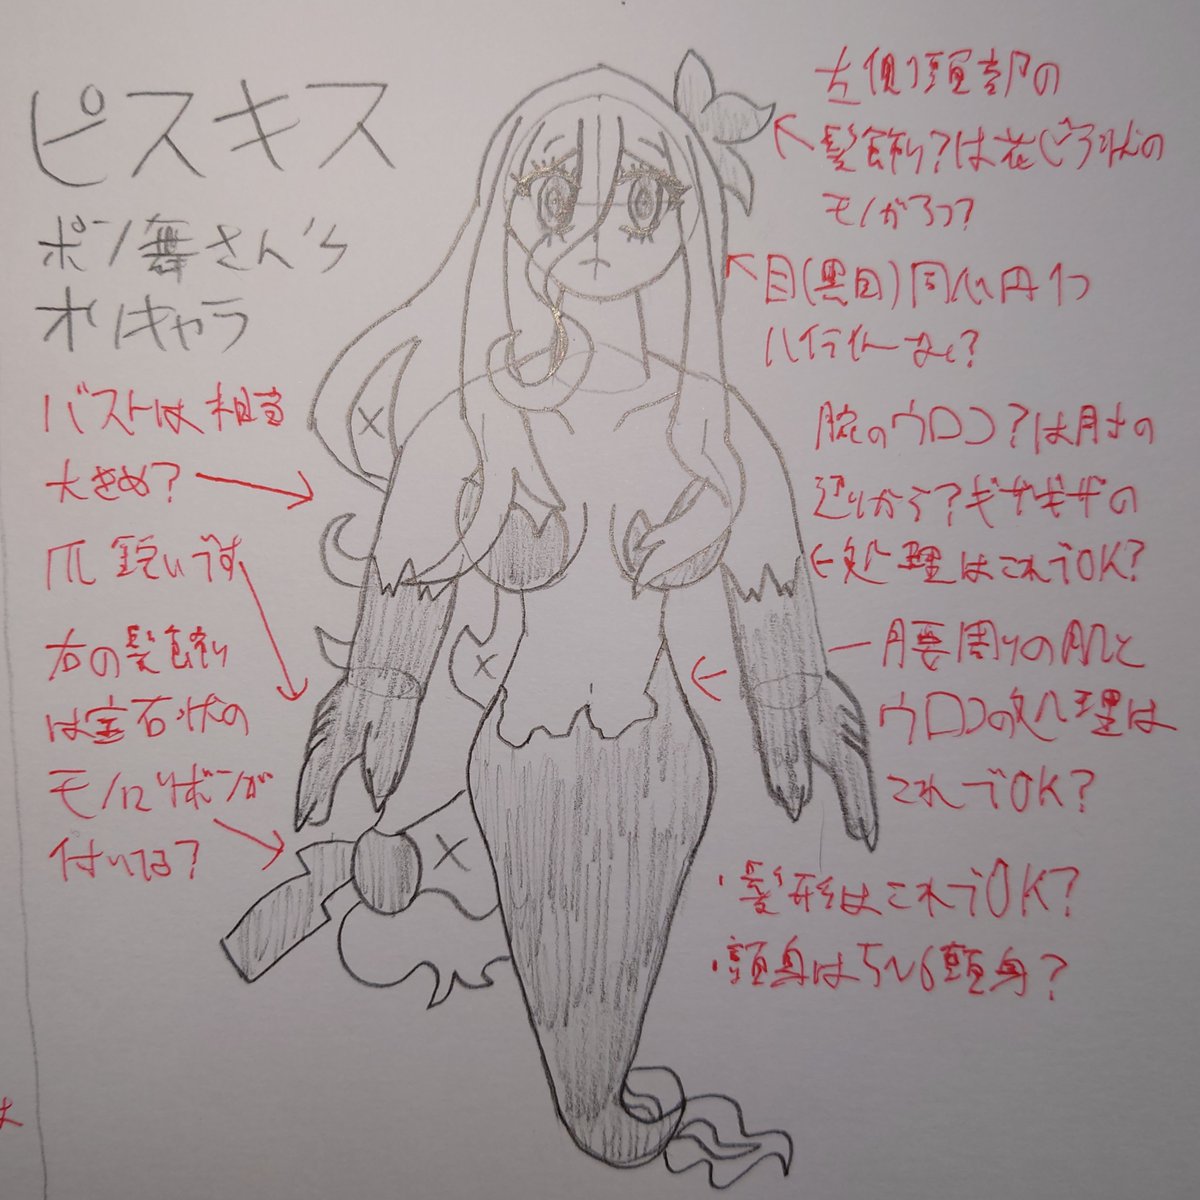 ピスキス
ポン舞さん's
オリキャラ
バストは相当
大きめ?
爪鋭いです
右の髪飾り
は宝石状の
モノにリボンが
付いてる?
左側頭部の
髪飾り?は花びら状の
モノが3つ?
目(黒目)同心円1つ
ハイライトなし?
腕のウロコ?は肘の
辺りから?ギザギザの
処理はこれでOK?
腰周りの肌と
ウロコの処理は
これでOK?
・髪形はこれでOK?
・頭身は5~6頭身?
は